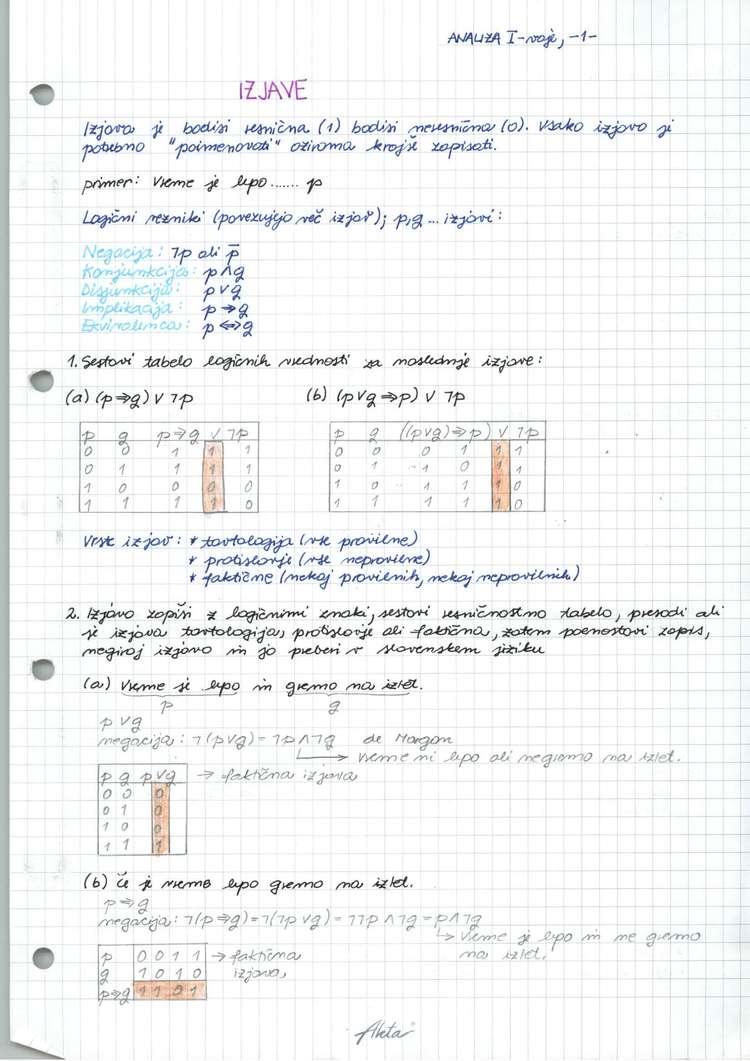 ANALIZA I-vaje, -1-
IZJAVE
Izjava je bodisi resnična (1) bodisi neresnična (0). Vsako izjavo je
potrebno "poimenovati" oziroma krajše zapisati.
primer: Vreme je lepo....... p
Logični vezniki (povezujejo več izjav); p,q ... izjavi:
Negacija: ¬p ali p̅
Konjunkcija: p∧q
Disjunkcija: p∨q
Implikacija: p⇒q
Ekvivalenca: p⇔q
1. Sestavi tabelo logičnih vrednosti za naslednje izjave:
(a) (p⇒q) ∨ ¬p (b) (p∨q⇒p) ∨ ¬p
p q p⇒q ∨ ¬p p q ((p∨q)⇒p) ∨ ¬p
0 0 1 1 1 0 0 0 1 1 1
0 1 1 1 1 0 1 1 0 1 1
1 0 0 0 0 1 0 1 1 1 0
1 1 1 1 0 1 1 1 1 1 0
Vrste izjav: * tavtologija (vse pravilne)
* protislovje (vse nepravilne)
* faktične (nekaj pravilnih, nekaj nepravilnih)
2. Izjavo zapiši z logičnimi znaki, sestavi resničnostno tabelo, presodi ali
je izjava tavtologija, protislovje ali faktična, zatem poenostavi zapis,
negiraj izjavo in jo preberi v slovenskem jeziku
(a) Vreme je lepo in gremo na izlet.
p q
p∨q
negacija: ¬(p∨q) = ¬p∧¬q de Morgan
→ Vreme ni lepo ali ne gremo na izlet.
p q p∨q → faktična izjava
0 0 0
0 1 0
1 0 0
1 1 1
(b) Če je vreme lepo gremo na izlet.
p⇒q
negacija: ¬(p⇒q) = ¬(¬p∨q) = ¬¬p∧¬q = p∧¬q
→ Vreme je lepo in ne gremo
na izlet.
p 0 0 1 1 → faktična
q 1 0 1 0 izjava,
p⇒q 1 1 0 1
Akta